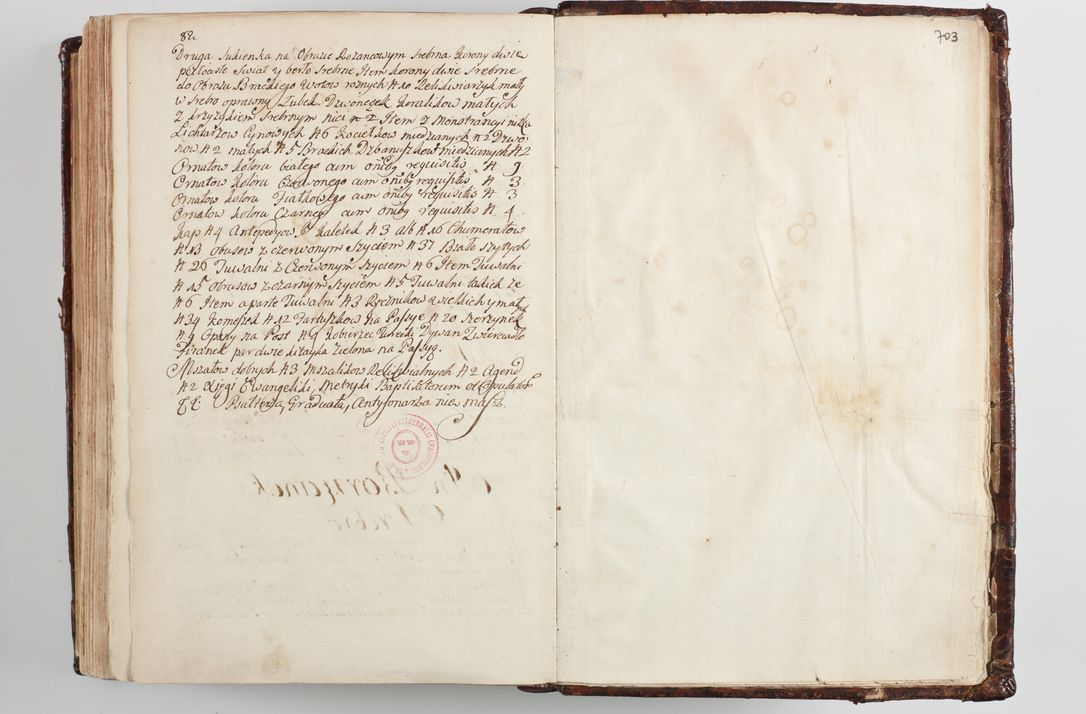 82.
703
Druga Sukienka na Obrazie Rozancowym srebrna korony dwie
perłowe Swiat y berło srebrne Item korony dwie srebrne
do Obrazu Brackiego Wotow roznych # 10 Relikwiarzyk mały
w srebro oprawny, Dzwonegek Koralikow małych
z krzyzykiem srebrnym nici # 2 Item z Monstrancyi nitka
Lichtarzow Cynowych # 6 Kociełkow miedzianych # 2 Dzwo¬
now # 2 małych # 5 Brackich Dzbanuszkow miedzianych # 2
Ornatow koloru białego cum omìby requisitis # 9
Ornatow koloru Czerwonego cum omìby requisitis # 3
Ornatow koloru Fiałkowego cum omìby requisitis # 3
Ornatow koloru Czarnego cum omìby requisitis # 4
Kap # 4 Antepedyow 6 # 3 alb # 16 Chumerałow
# 13 obrusow z czerwonym szyciem # 37 Biało szytych
# 26 Tuwalni z Czerwonym szyciem # 6 Item Tuwalni
# 15 obrusow z czarnym szyciem # 5 Tuwalni takich ze
# 6 Item aparte Tuwalni # 3 Ręcznikow wielkich y mały
# 34 Komeszek # 12 Fartuszkow na Passye # 20
# 9 Opony na Post # 9 Kobierzec Turecki Dywan Zwierciadło
Firanek par dwie kitayka zielona na Passyą.
Mszałow dobrych # 3 Mszalikow # 2 Agend
# 2 Xięgi Ewangeliki, Metryki Baptizatorum et Copulator
Psałterza, Graduała, Antyfonarza nie masz.